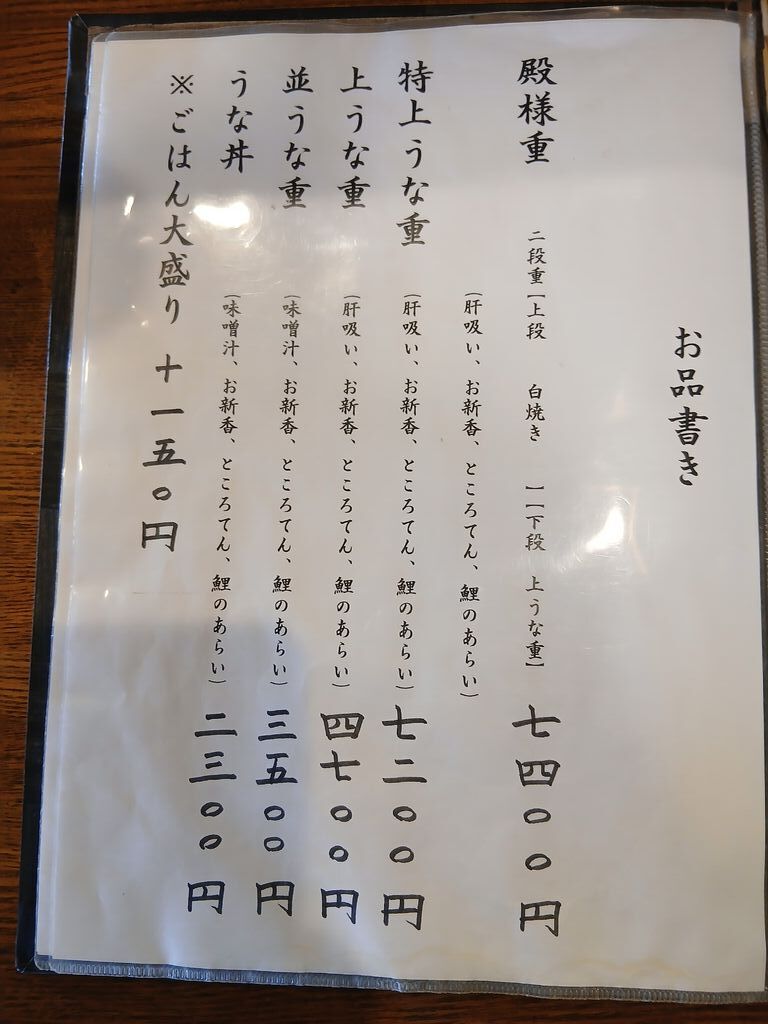 お品書き
殿様重　二段重【上段　白焼き　】【下段　上うな重】　七四〇〇円
（肝吸い、お新香、ところてん、鯉のあらい）
特上うな重　（肝吸い、お新香、ところてん、鯉のあらい）　七二〇〇円
上うな重　（肝吸い、お新香、ところてん、鯉のあらい）　四七〇〇円
並うな重　（味噌汁、お新香、ところてん、鯉のあらい）　三五〇〇円
うな丼　（味噌汁、お新香、ところてん、鯉のあらい）　二三〇〇円
※ごはん大盛り　十一五〇円